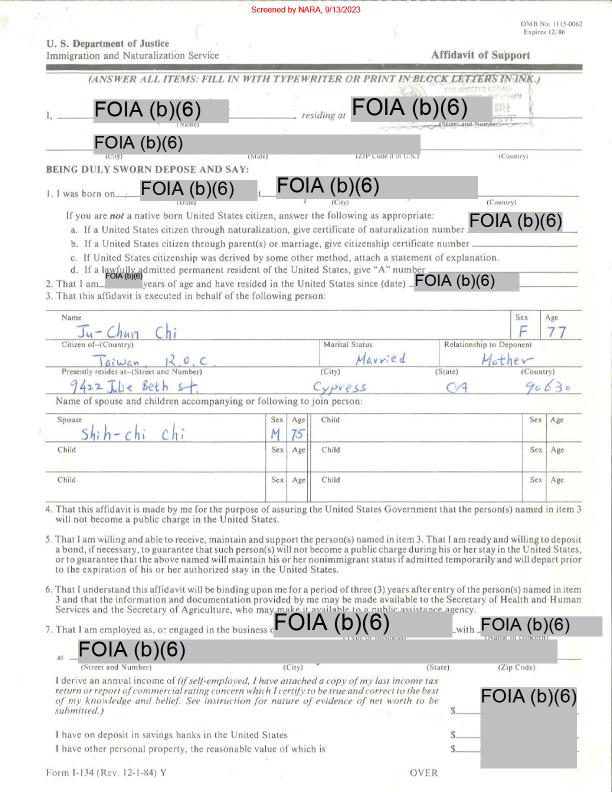 Screened by NARA, 9/13/2023
OMB No. 1115-0062
Expires 12/86
U. S. Department of Justice
Immigration and Naturalization Service
Affidavit of Support
(ANSWER ALL ITEMS: FILL IN WITH TYPEWRITER OR PRINT IN BLOCK LETTERS IN INK.)
I, FOIA (b)(6) , residing at FOIA (b)(6)
(Name) (Street and Number)
FOIA (b)(6)
(City) (State) (ZIP Code if in U.S.) (Country)
BEING DULY SWORN DEPOSE AND SAY:
1. I was born on FOIA (b)(6) FOIA (b)(6)
(Date) (City) (Country)
If you are not a native born United States citizen, answer the following as appropriate:
a. If a United States citizen through naturalization, give certificate of naturalization number FOIA (b)(6)
b. If a United States citizen through parent(s) or marriage, give citizenship certificate number
c. If United States citizenship was derived by some other method, attach a statement of explanation.
d. If a lawfully admitted permanent resident of the United States, give "A" number
2. That I am FOIA (b)(6) years of age and have resided in the United States since (date) FOIA (b)(6)
3. That this affidavit is executed in behalf of the following person:
Name Sex Age
Ju-Chun Chi F 77
Citizen of--(Country) Marital Status Relationship to Deponent
Taiwan, R.O.C. Married Mother
Presently resides at--(Street and Number) (City) (State) (Country)
9422 Julie Beth St. Cypress CA 90630
Name of spouse and children accompanying or following to join person:
Spouse Sex Age Child Sex Age
Shih-chi chi M 75
Child Sex Age Child Sex Age
Child Sex Age Child Sex Age
4. That this affidavit is made by me for the purpose of assuring the United States Government that the person(s) named in item 3
will not become a public charge in the United States.
5. That I am willing and able to receive, maintain and support the person(s) named in item 3. That I am ready and willing to deposit
a bond, if necessary, to guarantee that such person(s) will not become a public charge during his or her stay in the United States,
or to guarantee that the above named will maintain his or her nonimmigrant status if admitted temporarily and will depart prior
to the expiration of his or her authorized stay in the United States.
6. That I understand this affidavit will be binding upon me for a period of three (3) years after entry of the person(s) named in item
3 and that the information and documentation provided by me may be made available to the Secretary of Health and Human
Services and the Secretary of Agriculture, who may make it available to a public assistance agency.
7. That I am employed as, or engaged in the business o FOIA (b)(6) with FOIA (b)(6)
at FOIA (b)(6)
(Street and Number) (City) (State) (Zip Code)
I derive an annual income of (if self-employed, I have attached a copy of my last income tax
return or report of commercial rating concern which I certify to be true and correct to the best
of my knowledge and belief. See instruction for nature of evidence of net worth to be
submitted.) $ FOIA (b)(6)
I have on deposit in savings banks in the United States $
I have other personal property, the reasonable value of which is $
Form I-134 (Rev. 12-1-84) Y OVER